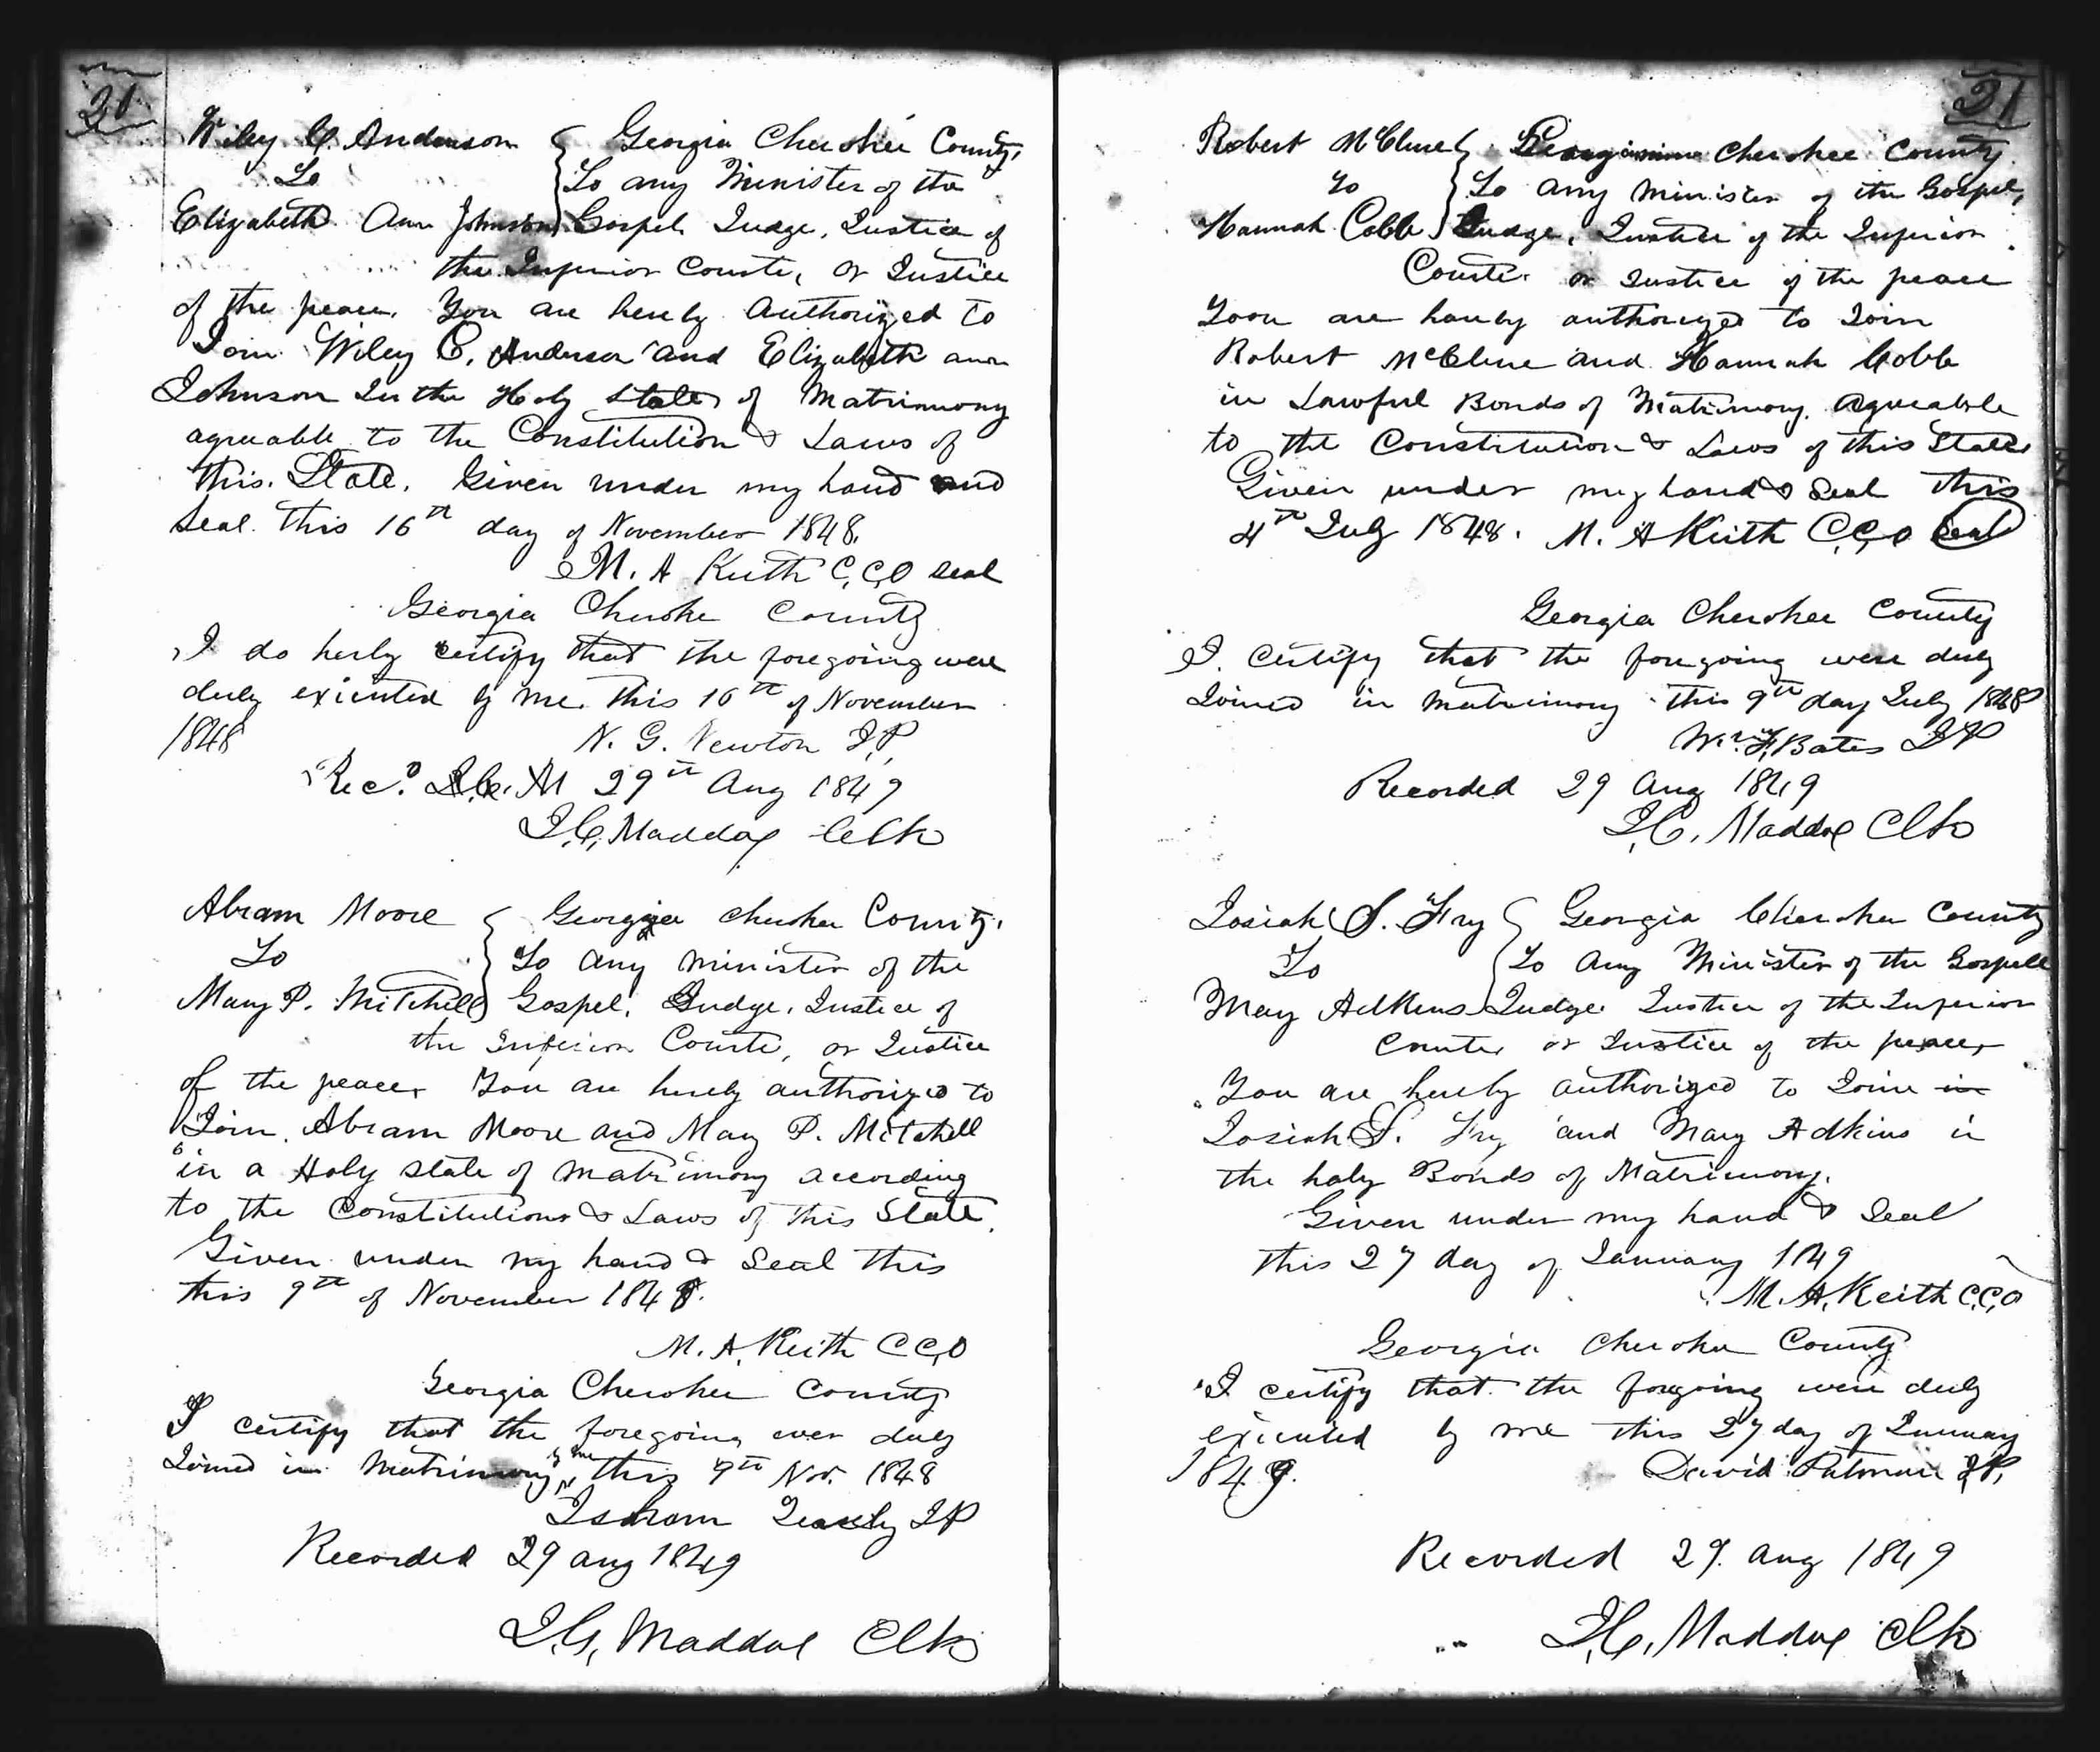 20
Wiley C. Anderson { Georgia Cherokee County,
To } To any Minister of the
Elizabeth Ann Johnson } Gospel, Judge, Justice of
the Inferior Courte, or Justice
of the peace. You are hereby Authorized to
Join Wiley C. Anderson and Elizabeth ann
Johnson In the Holy State of Matrimony
agreeable to the Constitution & Laws of
this State. Given under my hand and
Seal this 16th day of November 1848.
M. A Keith C,C,O seal
Georgia Cherokee County
I do herby certify that the foregoing were
duly executed by me. this 16th of November
1848 N. G. Newton J,P,
Recd. 29th Aug 1849
J,C, Maddox Clk
Abram Moore { Georgia Cherokee County.
To } To any minister of the
Mary P. Mitchell } Gospel, Judge, Justice of
the Inferior Courte, or Justice
of the peace, You are hereby authorized to
Join. Abram Moore and Mary P. Mitchell
in a Holy State of matrimony according
to the Constitution & Laws of this State.
Given under my hand & Seal this
this 9th of November 1848.
M. A. Keith C C,O
Georgia Cherokee County
I certify that the foregoing wer duly
Joined in Matrimony by me this 9th Nov. 1848
Isham Teasly J P
Recorded 29 aug 1849
J,C, Maddox Clk
21
Robert McClure { Georgia Cherokee County
To } To any minister of the Gospel,
Hannah Cobb } Judge, Justice of the Inferior
Courte. or Justice of the peace
Yoou are hereby authorized to Join
Robert McClure and Hannah Cobb
in Lawful Bonds of Matrimony. Agreeable
to the Constitution & Laws of this State
Given under my hand & Seal this
4th July 1848. M. A Keith C,C,O Seal
Georgia Cherokee County
I. Certify that the foregoing were duly
Joined in matrimony this 9th day July 1848
Wm. F, Bates J P
Recorded 29 Aug 1849
J,C, Maddox Clk
Josiah S. Fry { Georgia Cherokee County
To } To Any Minister of the Gospell
Mary Adkins } Judge Justice of the Inferior
Courte, or Justice of the peace,
You are hereby authorized to Joine in
Josiah S. Fry and Mary Adkins in
the holy Bonds of Matrimony.
Given under my hand & Seal
this 27 day of January 1849
M. A, Keith C,C,O
Georgia Cherokee County
I certify that the foregoing were duly
executed by me this 27 day of January
1849. David Putman J,P,
Recorded 29. Aug 1849
J,C, Maddox Clk